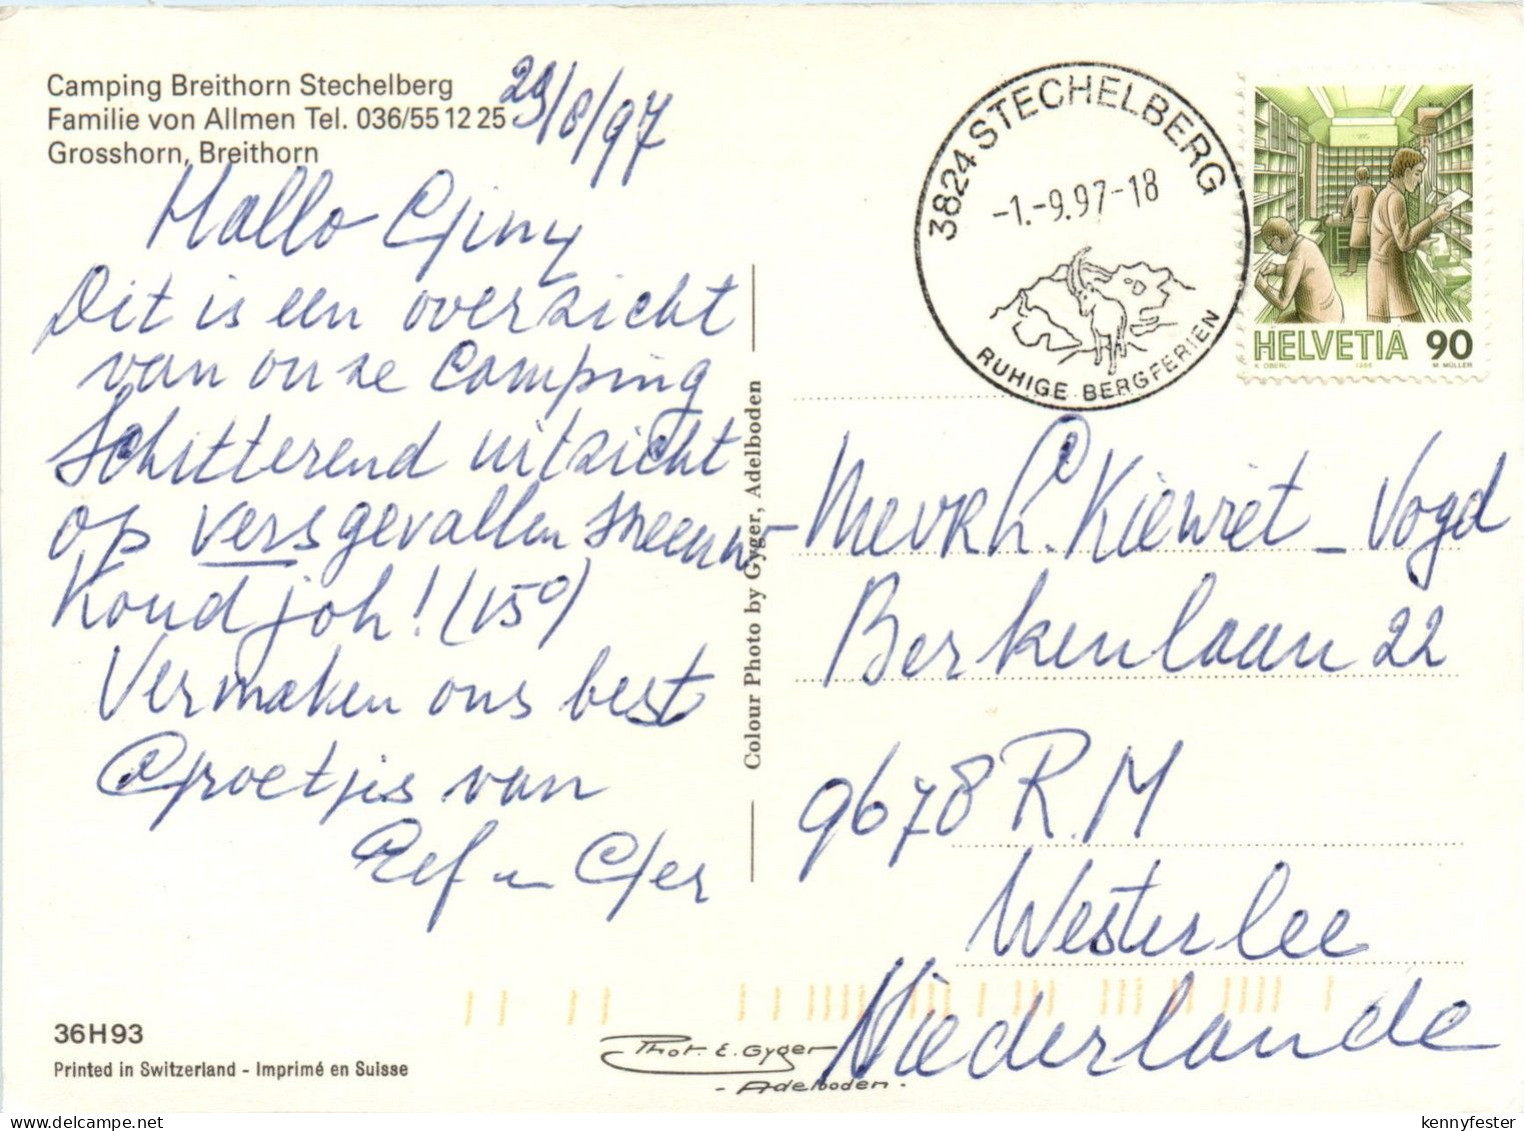 Camping Breithorn Stechelberg
Familie von Allmen Tel. 036/55 12 25
Grosshorn, Breithorn
29/8/97
Hallo Giny
Dit is een overzicht
van onze Camping
Schitterend uitzicht
op vers gevallen sneeuw
Koud joh! (15°)
Vermaken ons best
Groetjes van
Eef en Ger
36H93
Printed in Switzerland - Imprimé en Suisse
Colour Photo by Gyger, Adelboden
Phot. E. Gyger
- Adelboden -
3824 STECHELBERG
-1.-9.97-18
RUHIGE BERGFERIEN
HELVETIA 90
K. OBERLI 1986 M. MÜLLER
Mevr. Kiewiet - Vogd
Berkenlaan 22
9678 R.M
Westerlee
Niederlande
kennyfester